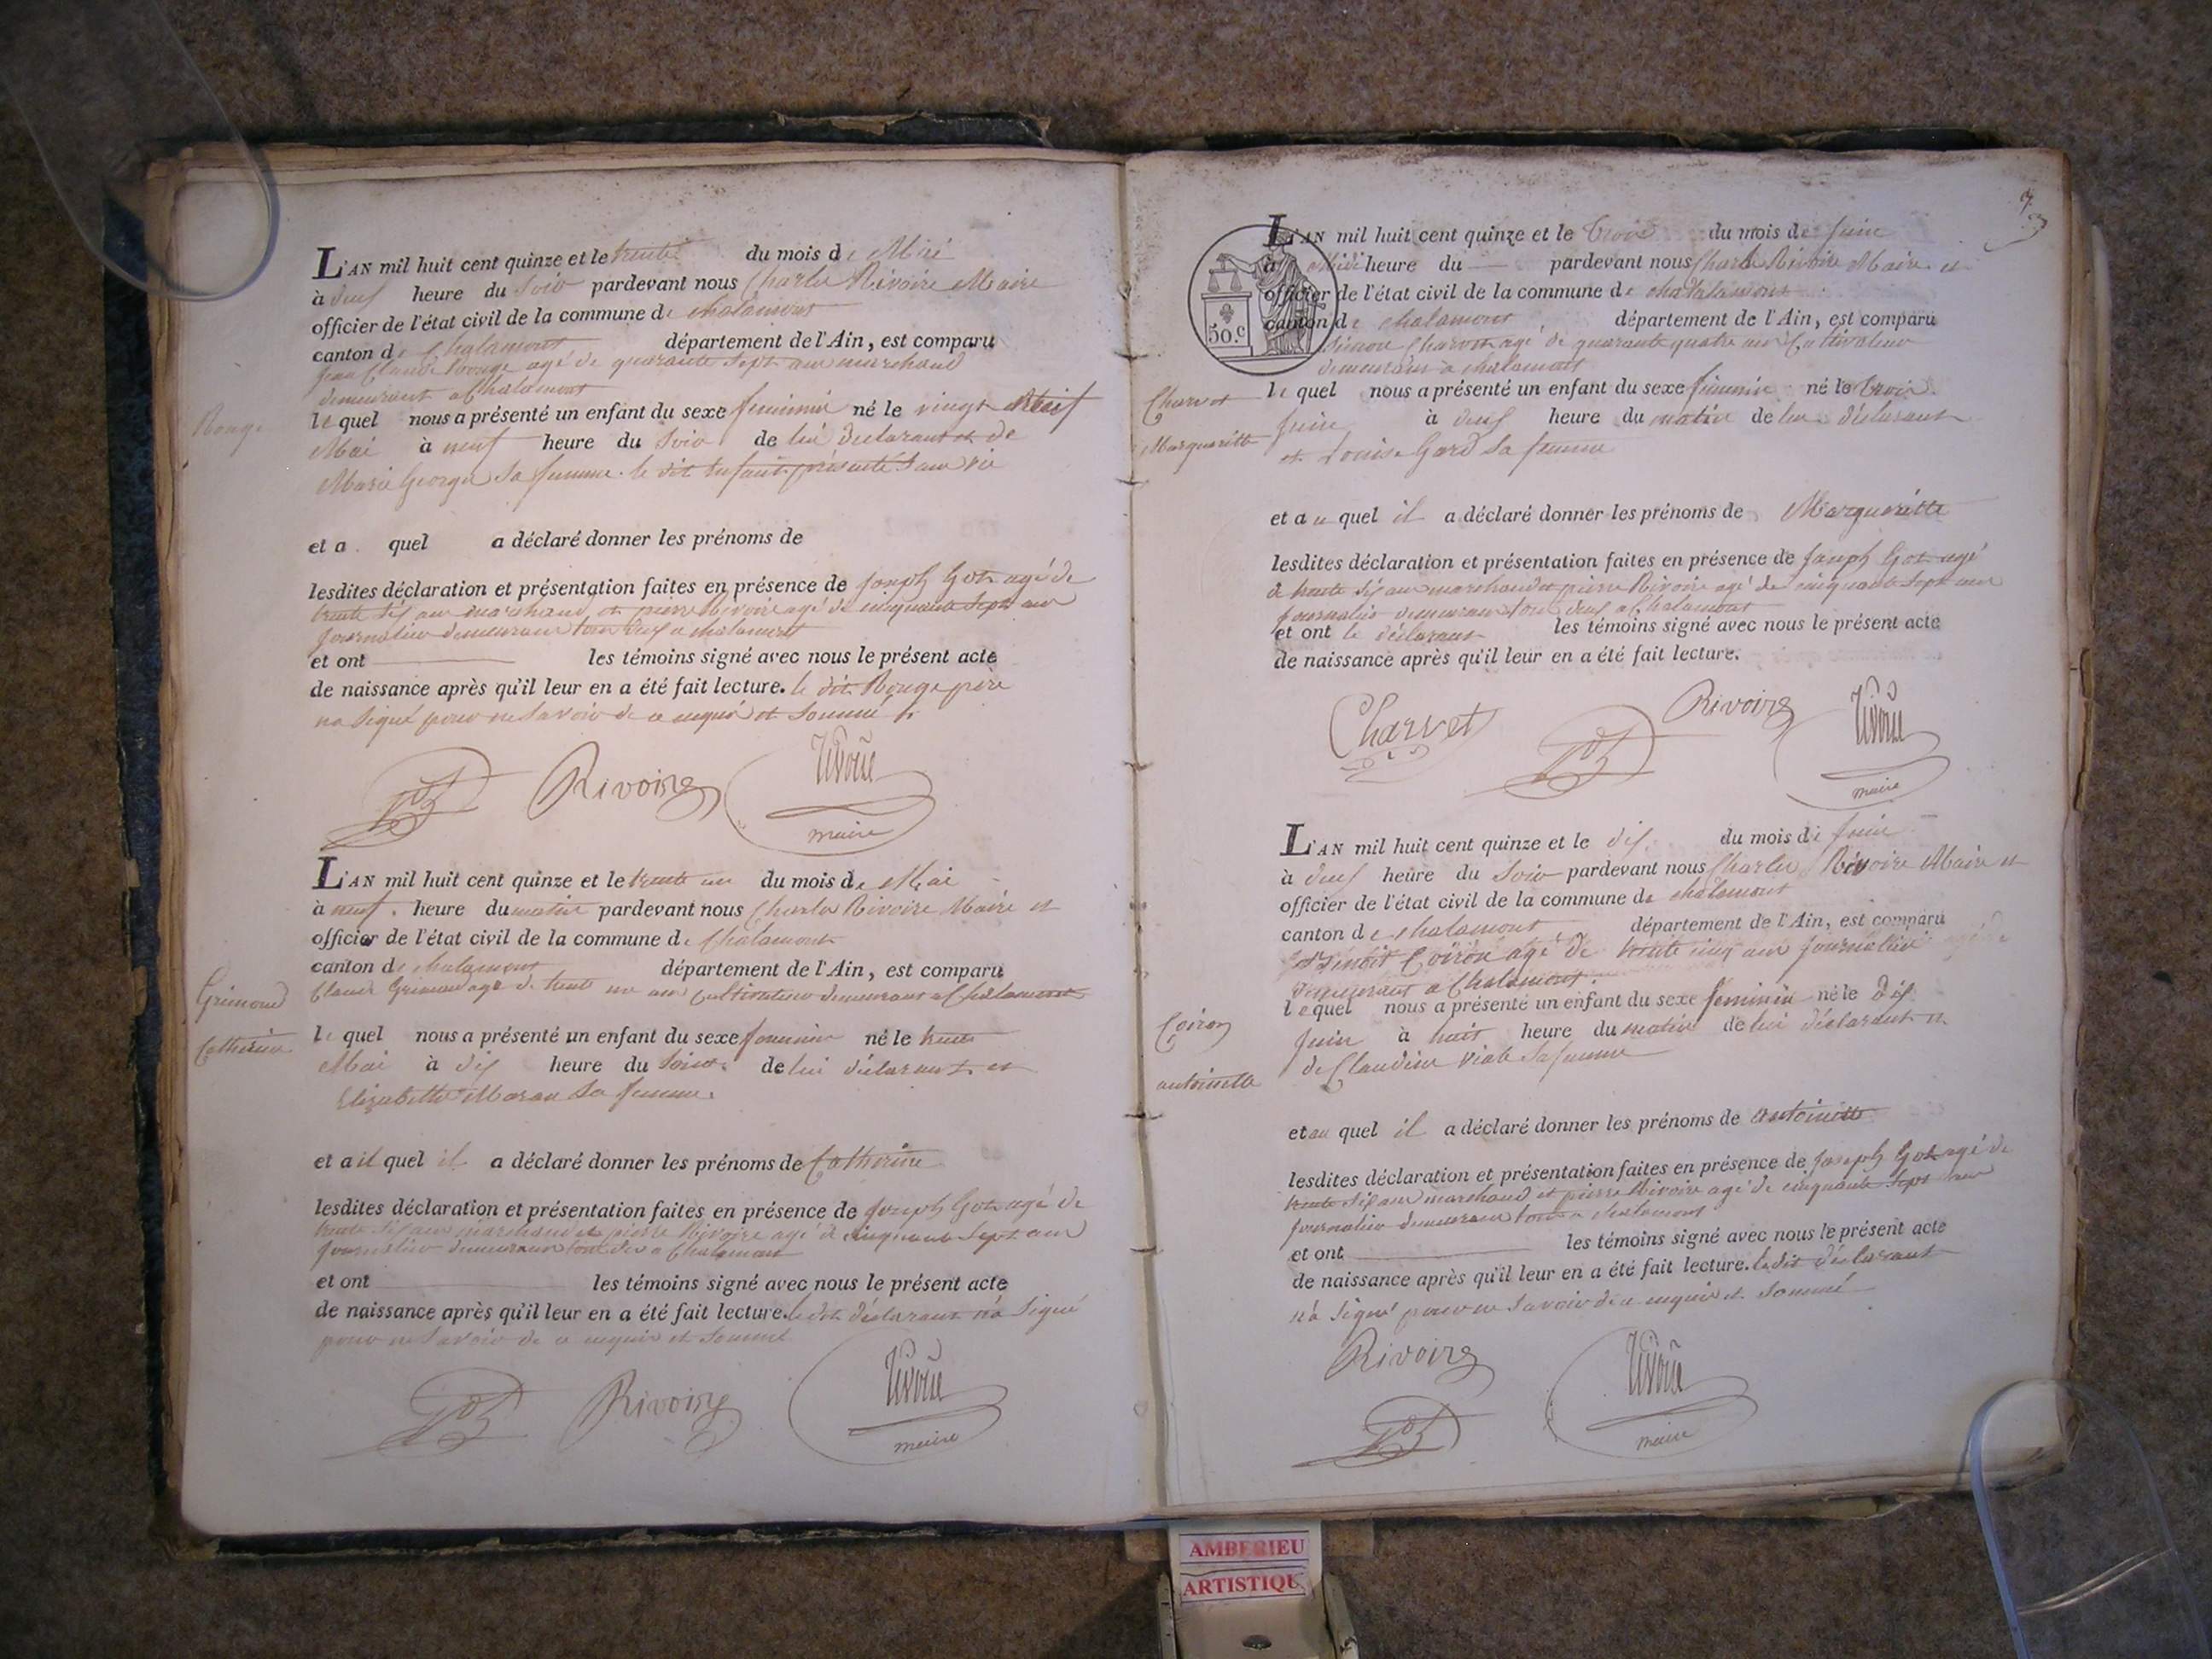 L'AN mil huit cent quinze et le trente du mois de Mai
à deux heure du soir pardevant nous Charles Rivoire Maire
officier de l'état civil de la commune de chalamont
canton de Chalamont département de l'Ain, est comparu
Jean Claude Rouge agé de quarante sept ans marchand
demeurant a Chalamont
Rouge
le quel nous a présenté un enfant du sexe feminin né le vingt
Mai à neuf heure du soir de lui declarant et de
Marie George sa femme. le dit Enfant présenté sans vie
et a quel a déclaré donner les prénoms de
lesdites déclaration et présentation faites en présence de Joseph Got agé de
trente six ans marchand et pierre Rivoire agé de cinquante sept ans
journalier demeurans tous deux a chalamont
et ont les témoins signé avec nous le présent acte
de naissance après qu'il leur en a été fait lecture. le dit Rouge pere
na signé pour ne savoir de ce enquis et sommé
Rivoire
maire
L'AN mil huit cent quinze et le trente un du mois de Mai
à neuf heure du matin pardevant nous Charles Rivoire Maire et
officier de l'état civil de la commune de Chalamont
canton de chalamont département de l'Ain, est comparu
Claude Grimoud agé de trente un ans cultivateur demeurant a Chalamont
Grimoud
Catherine
le quel nous a présenté un enfant du sexe feminin né le trente
Mai à dix heure du soir de lui déclarant et
Elizabeth Moran sa femme.
et a il quel il a déclaré donner les prénoms de Catherine
lesdites déclaration et présentation faites en présence de Joseph Got agé de
trente six ans marchand et pierre Rivoire agé de cinquante sept ans
journalier demeurans tous deux a Chalamont
et ont les témoins signé avec nous le présent acte
de naissance après qu'il leur en a été fait lecture. le dit déclarant n'a signé
pour ne savoir de ce enquis et sommé
Rivoire
maire
50.c
L'AN mil huit cent quinze et le trois du mois de juin
à Midi heure du pardevant nous Charles Rivoire Maire et
officier de l'état civil de la commune de
canton de chalamont département de l'Ain, est comparu
Simon Charvet agé de quarante quatre ans Cultivateur
demeurant a chalamont
Charvet
Marguerite
le quel nous a présenté un enfant du sexe feminin né le trois
juin à deux heure du matin de lui déclarant
et Louise Gard sa femme
et a u quel il a déclaré donner les prénoms de Marguerite
lesdites déclaration et présentation faites en présence de Joseph Got agé
de trente six ans marchand et pierre Rivoire agé de cinquante sept ans
journalier demeurans tous deux a Chalamont
et ont le déclarant les témoins signé avec nous le présent acte
de naissance après qu'il leur en a été fait lecture.
Charvet
Rivoire
maire
L'AN mil huit cent quinze et le dix du mois de juin
à deux heure du soir pardevant nous Charles Rivoire Maire et
officier de l'état civil de la commune de chalamont
canton de chalamont département de l'Ain, est comparu
Benoit Coiron agé de trente cinq ans journalier
demeurant a Chalamont.
Coiron
antoinette
le quel nous a présenté un enfant du sexe feminin né le dix
juin à huit heure du matin de lui déclarant et
de Claudine Viale sa femme
et au quel il a déclaré donner les prénoms de antoinette
lesdites déclaration et présentation faites en présence de Joseph Got agé de
trente six ans marchand et pierre Rivoire agé de cinquante sept ans
journalier demeurans tous a chalamont
et ont les témoins signé avec nous le présent acte
de naissance après qu'il leur en a été fait lecture. le dit déclarant
n'a signé pour ne savoir de ce enquis et sommé
Rivoire
maire
AMBERIEU
ARTISTIQU